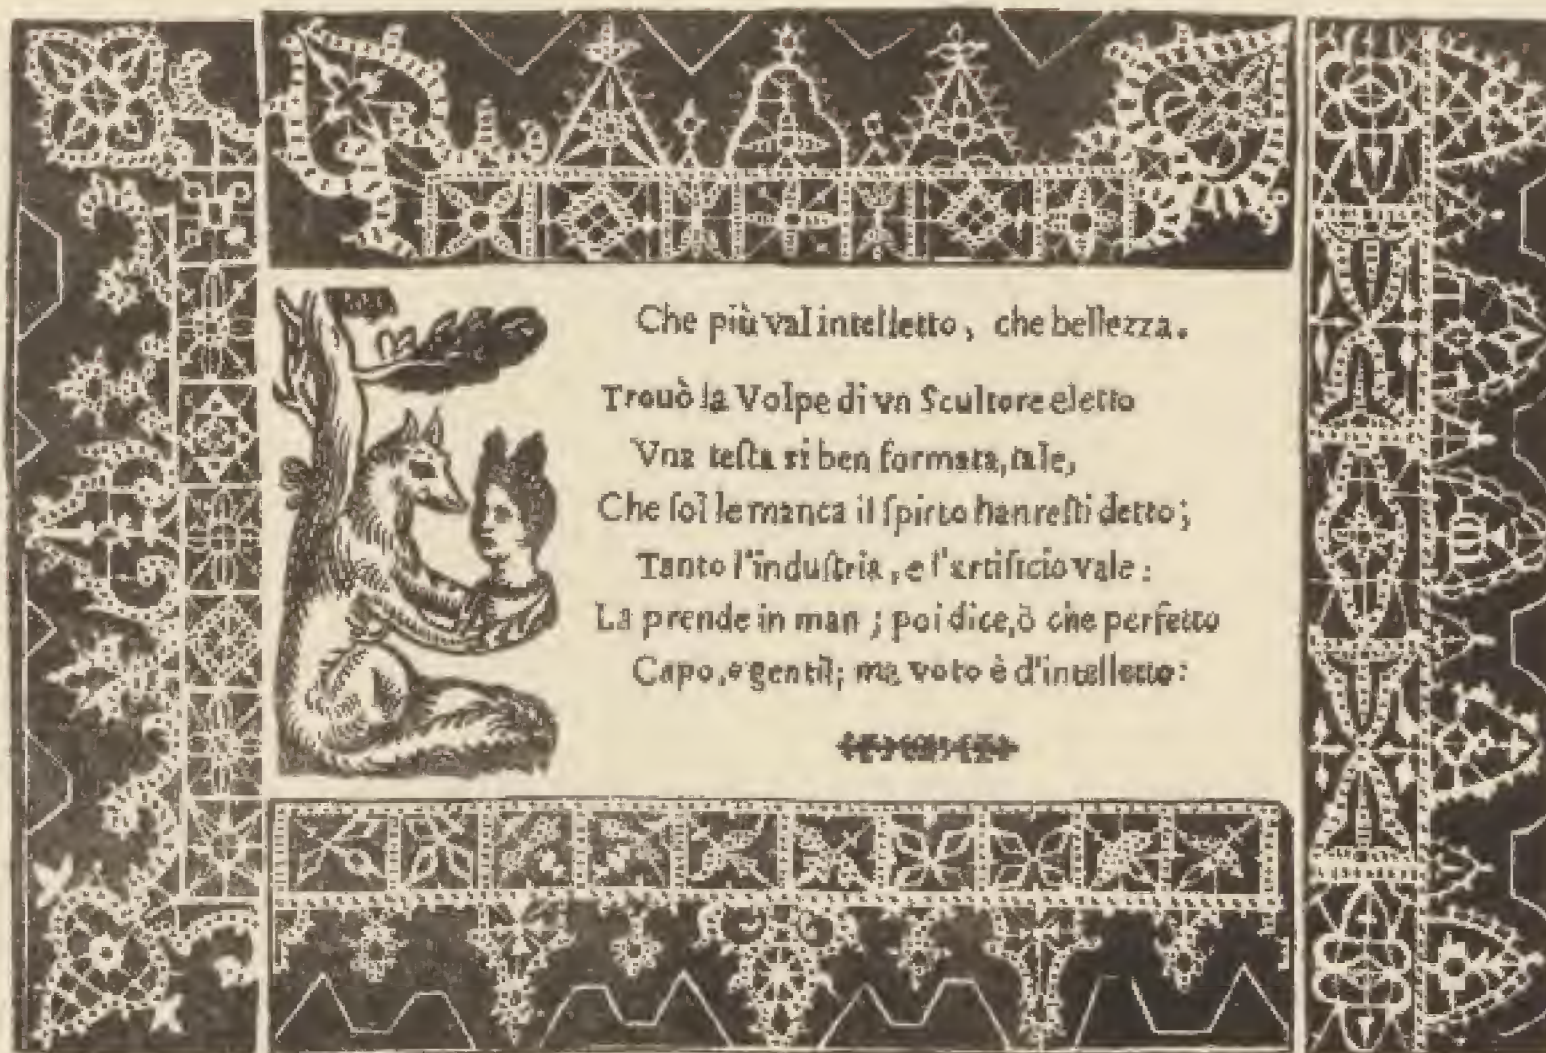 Che più val intelletto, che bellezza.
Trouò la Volpe di vn Scultore eletto
Vna teſta sì ben formata, tale,
Che ſol le manca il ſpirto haureſti detto;
Tanto l'induſtria, e l'artificio vale:
La prende in man; poi dice, ò che perfetto
Capo, e gentil; ma voto è d'intelletto: